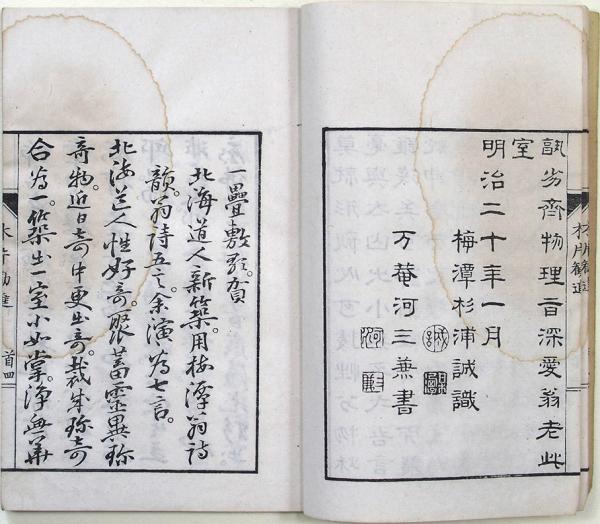 孰劣齊物理旨深愛翁老此
室
明治二十年一月
梅潭杉浦誠識
万菴河三兼書
一疊敷歌。賀
北海道人新築。用梅潭翁詩
韻。翁詩五言。余演為七言。
北海道人性好奇。蓄靈異珍
奇物。近日奇中更出奇。裁成珍奇
合為一。築出一室小如掌。淨無華
木片勧進
首四